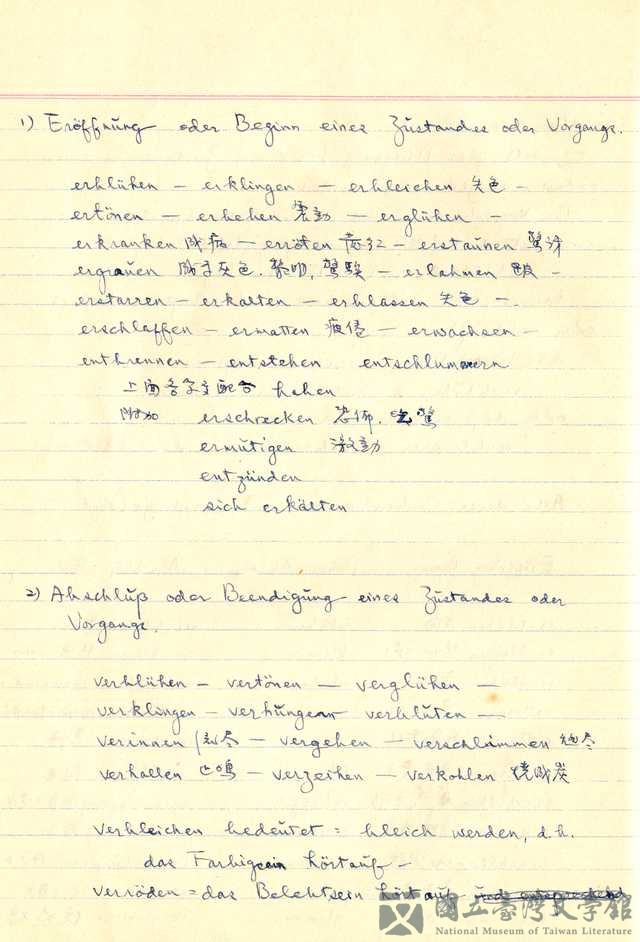 1) Eröffnung oder Beginn eines Zustandes oder Vorgangs.
erblühen — erklingen — erbleichen 失色 —
ertönen — erbeben 震動 — erglühen —
erkranken 成病 — erröten 赤紅 — erstaunen 驚訝
ergrauen 成了灰色. 黎明, — erlahmen 跛 —
erstarren — erkalten — erblassen 失色 —.
erschlaffen — ermatten 疲倦 — erwachsen —
entbrennen — entstehen entschlummern
上面各字配合 haben
附加 erschrecken 恐怖. 吃驚
ermutigen 激動
entzünden
sich erkälten
2) Abschluß oder Beendigung eines Zustandes oder
Vorgangs.
verblühen — vertönen — verglühen —
verklingen — verhungern verbluten —
verrinnen — vergehen — verschlimmen
verhallen — verzeihen — verkohlen 燒成炭
Verbleichen bedeutet = bleich werden, d.h.
das Farbigsein hört auf —
veröden = das Belebtsein hört auf
國立臺灣文學館
National Museum of Taiwan Literature